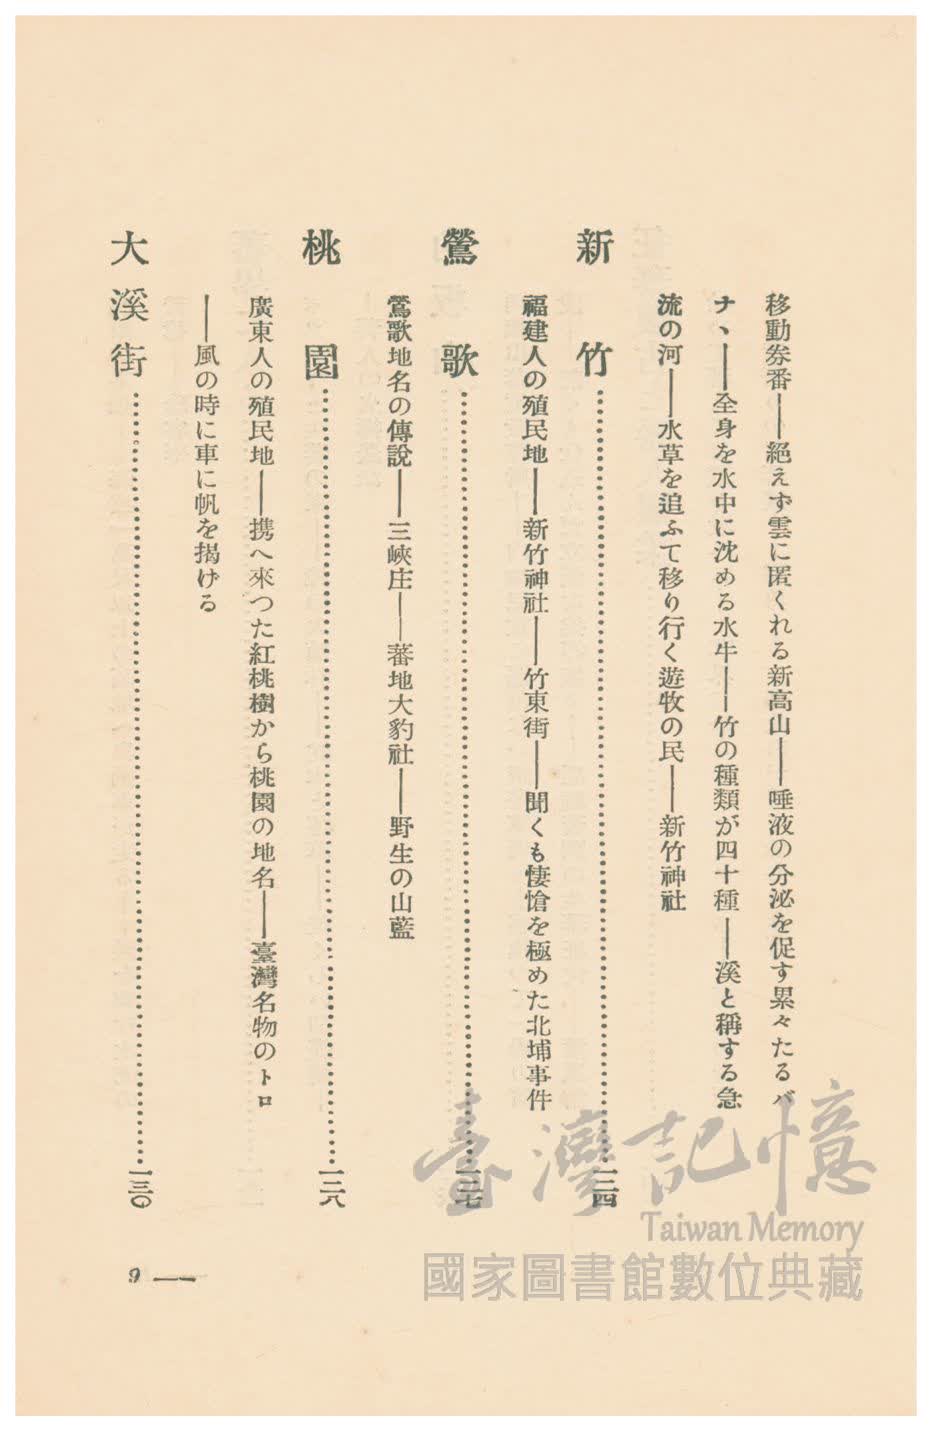 移動券番――絕えず雲に匿くれる新高山――唾液の分泌を促す累々たるバ
ナヽ――全身を水中に沈める水牛――竹の種類が四十種――溪と稱する急
流の河――水草を追ふて移り行く遊牧の民――新竹神社
新竹……一二四
福建人の殖民地――新竹神社――竹東街――聞くも悽愴を極めた北埔事件
鶯歌……一二七
鶯歌地名の傳說――三峽庄――蕃地大豹社――野生の山藍
桃園……一二八
廣東人の殖民地――携へ來つた紅桃樹から桃園の地名――臺灣名物のトロ
――風の時に車に帆を揭げる
大溪街……一三〇
9 ―
臺灣記憶
Taiwan Memory
國家圖書館數位典藏